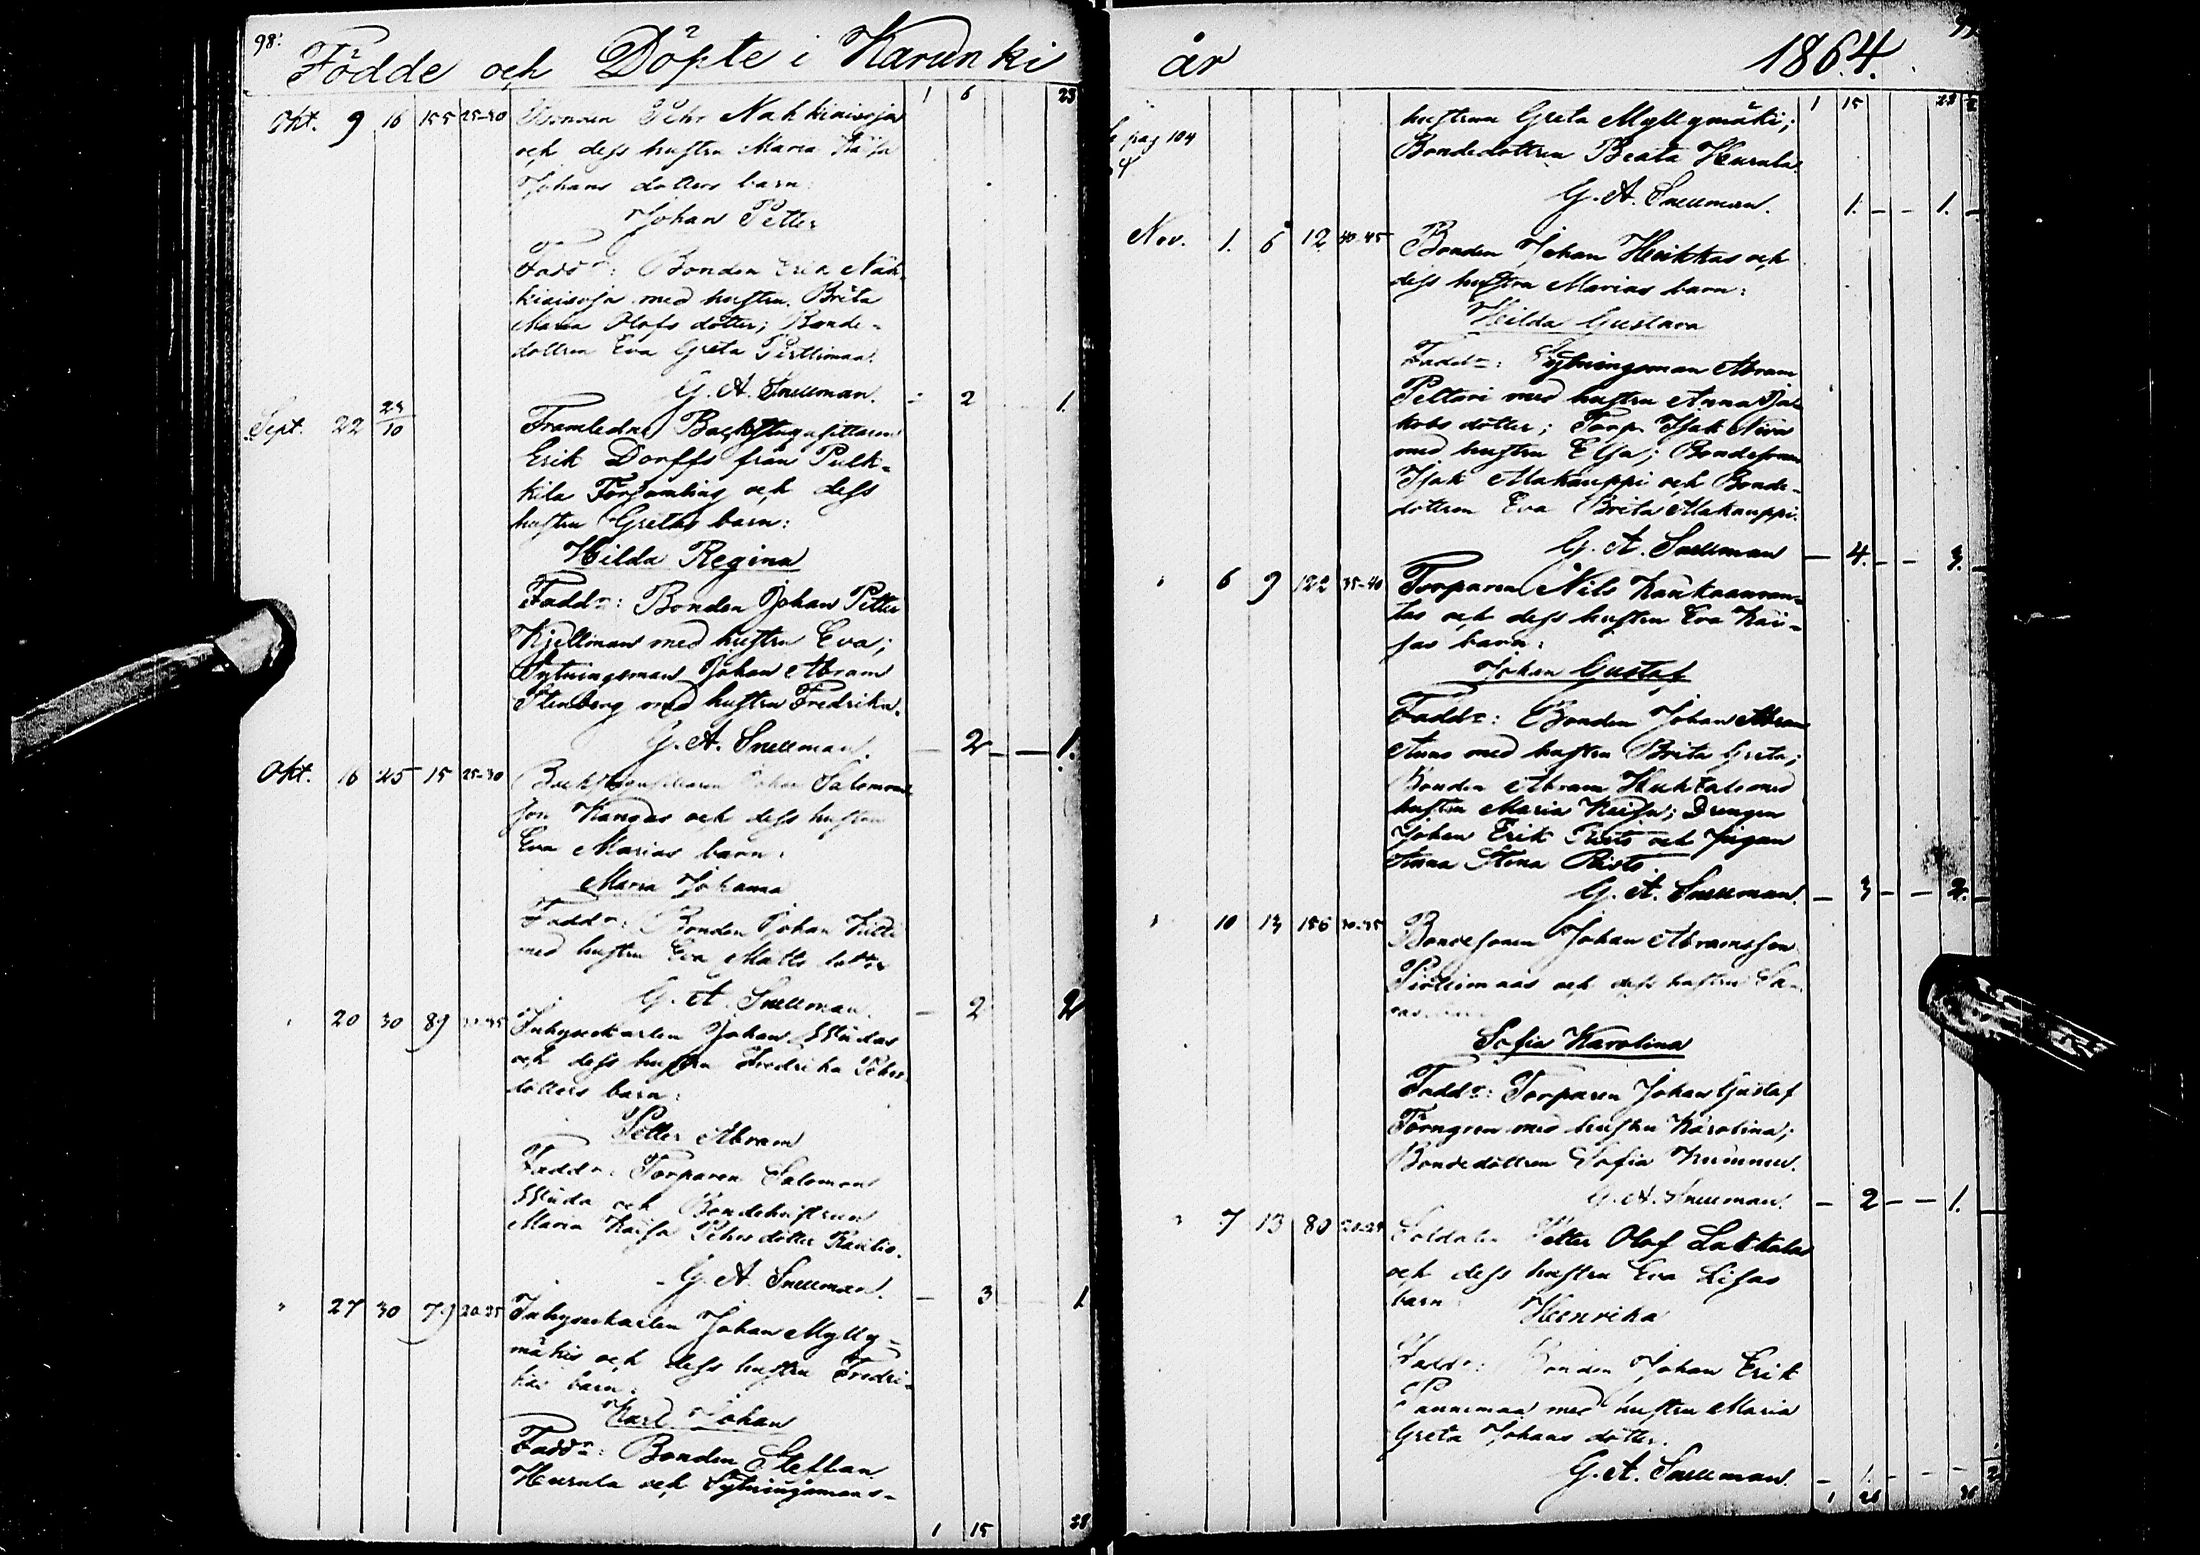 98:
Födde och Döpte i Karunki
1 6 23
Okt. 9 16 155 25-30 Bonden Pehr Nahkiaisoja
och dess hustru Maria Kaisa
Johans dotters barn:
Johan Petter
Faddr: Bonden Erik Nah-
kiaisoja med hustru Brita
Maria Olofs dotter; Bonde-
dottren Eva Greta Pirttimaa.
G. A. Snellman. - 2 1.
Sept. 22 29/10 Framledne Backstugusittaren
Erik Dorffs från Pulk-
kila Församling och dess
hustru Gretas barn:
Hilda Regina
Faddr: Bonden Johan Petter
Kjellman med hustru Eva;
Sytningsman Johan Abram
Stenberg med hustru Fredrika.
G. A. Snellman. - 2 - - 1.
Okt. 16 25 15 25-30 Backstugusittaren Johan Salomons
son Kangas och dess hustru
Eva Marias barn:
Maria Johanna
Faddr: Bonden Johan
med hustru Eva Matts dotter
G. A. Snellman. - 2 2
" 20 30 89 Inhysekarlen Johan
och dess hustru Fredrika Pehrs
dotters barn:
Petter Abram
Faddr: Torparen Salomon
och Bondehustrun
Maria Kaisa Pehrs dotter
G. A. Snellman. - 3 1
" 27 30 79 20-25 Inhysekarlen Johan Mylly-
mäkis och dess hustru Fredri-
kas barn:
Karl Johan
Faddr: Bonden Steffan
Hurula och Sytningsmans-
1 15 28
år 1864.
1 15 28
pag 104
hustrun Greta Myllymäki;
Bondedottren Beata Hurula.
G. A. Snellman. 1. - - 1. -
Nov. 1. 6 12 40-45 Bonden Johan Heikkas och
dess hustru Marias barn:
Hilda Gustava
Faddr: Sytningsman Abram
Peltari med hustru Anna Ja-
kobs dotter; Torp. Isak Niva
med hustru Elsa; Bondesonen
Isak Alakauppi och Bonde-
dottren Eva Brita Alakauppi.
G. A. Snellman - 4 - - 3.
" 6 9 122 35-40 Torparen Nils Kankaanran-
tas och dess hustru Eva Kai-
sas barn:
Johan Gustaf
Faddr: Bonden Johan Abram
med hustru Brita Greta;
Bonden Abram Huhtala med
hustru Maria Kaisa; Drengen
Johan Erik och Pigan
Anna Stina
G. A. Snellman. - 3 - - 2.
" 10 13 156 30-35 Bondesonen Johan Abramsson
Pirttimaas och dess hustru Sa-
ras barn
Sofia Karolina
Faddr: Torparen Johan Gustaf
Törngren med hustru Karolina;
Bondedottren Sofia
G. A. Snellman. - 2 - - 1.
" 7 13 80 Soldaten Petter Olof Lakkala
och dess hustru Eva Lisas
barn
Henrika
Faddr: Bonden Johan Erik
Pannimaa med hustru Maria
Greta Johans dotter.
G. A. Snellman. - 1 - - - 2
1 26 36